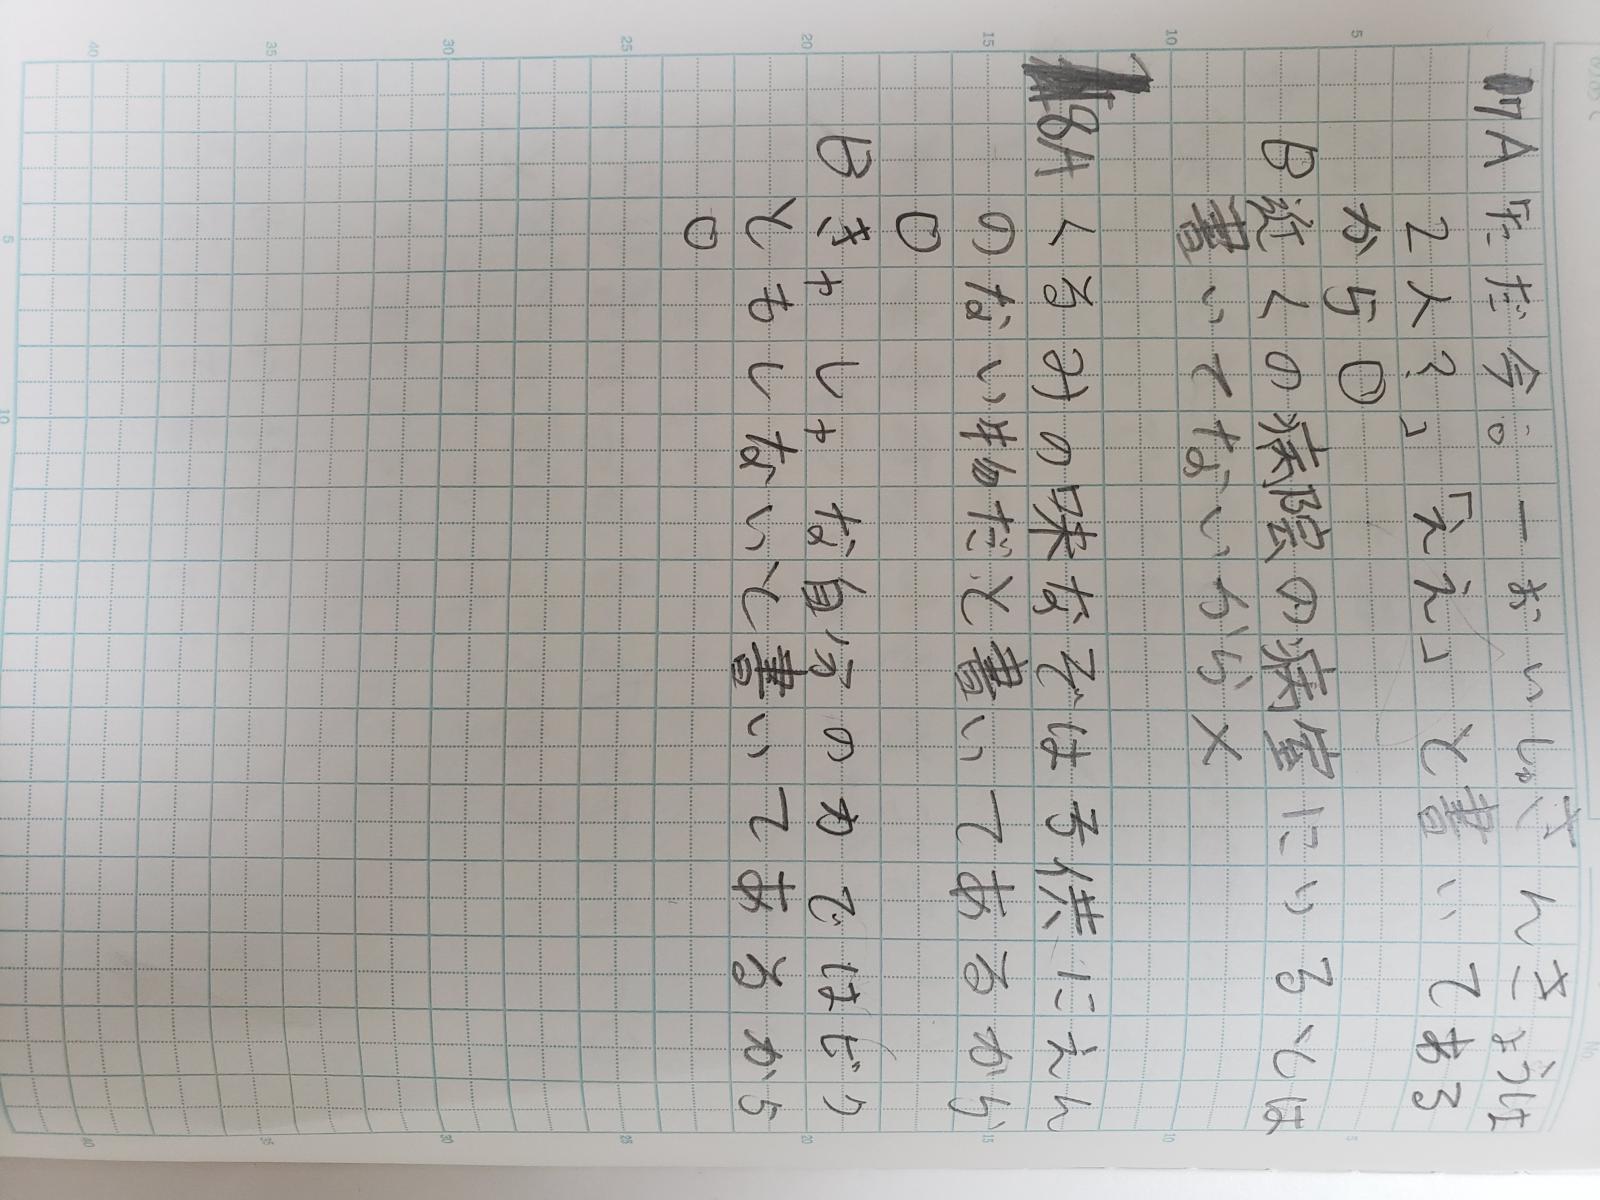 17A 「ただ今。ーおいしゃさんきょうは
2人?」「ええ」と書いてある
から〇
B 近くの病院の病室にいるとは
書いてないから×
18A くるみの味なでは子供にえん
のない物だと書いてあるから
〇
B きゃしゃな自分のカではびく
ともしないと書いてあるから
〇